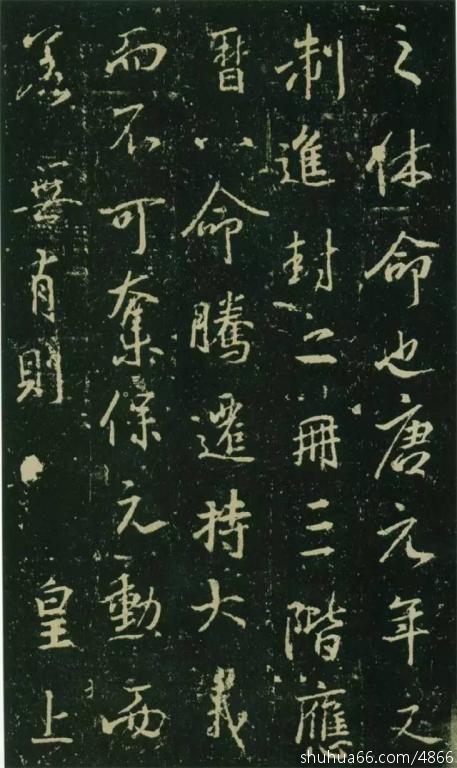 之休命也唐元年之
制進封二冊三階應
曆八命騰遷持大義
而不可奪保元勳而
若無有則皇上
shuhua66.com/4866